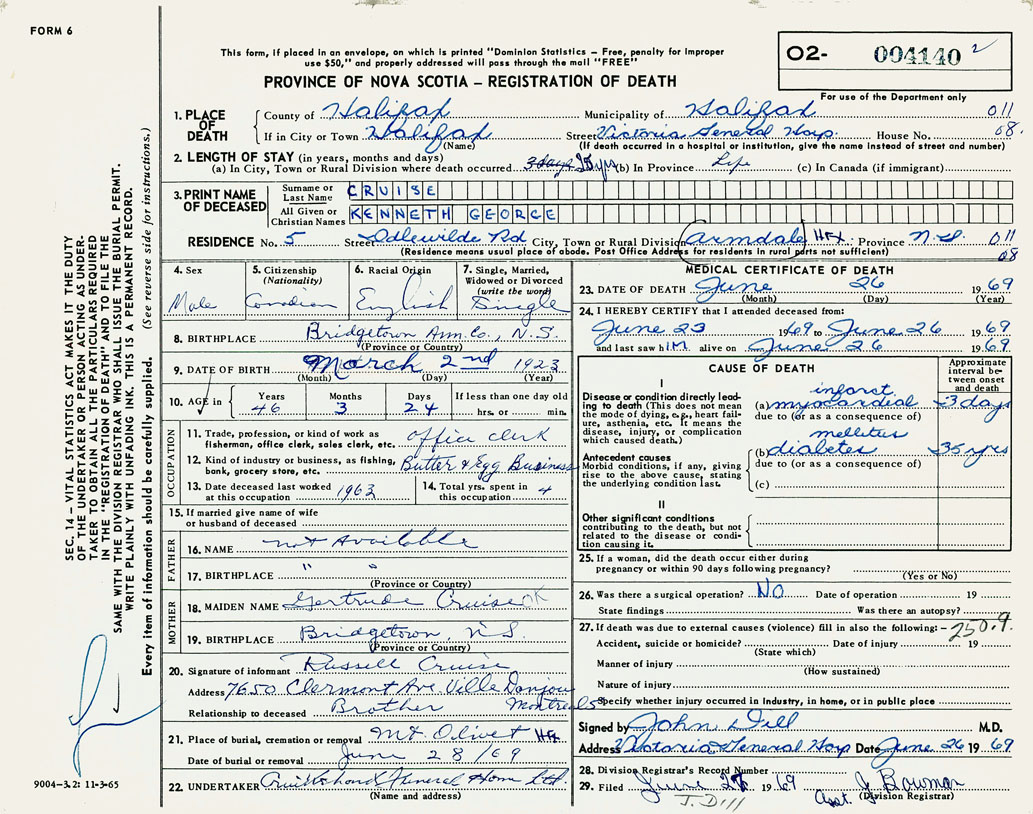 FORM 6
This form, if placed in an envelope, on which is printed "Dominion Statistics – Free, penalty for improper
use $50," and properly addressed will pass through the mail "FREE"
PROVINCE OF NOVA SCOTIA – REGISTRATION OF DEATH
O2- 004140 2
For use of the Department only
SEC. 14 – VITAL STATISTICS ACT MAKES IT THE DUTY
OF THE UNDERTAKER OR PERSON ACTING AS UNDER-
TAKER TO OBTAIN ALL THE PARTICULARS REQUIRED
IN THE "REGISTRATION OF DEATH" AND TO FILE THE
SAME WITH THE DIVISION REGISTRAR WHO SHALL ISSUE THE BURIAL PERMIT.
WRITE PLAINLY WITH UNFADING INK. THIS IS A PERMANENT RECORD.
Every item of information should be carefully supplied. (See reverse side for instructions.)
1. PLACE OF DEATH
County of Halifax Municipality of Halifax 011
If in City or Town Halifax Street Victoria General Hosp. House No. 08.
(Name) (If death occurred in a hospital or institution, give the name instead of street and number)
2. LENGTH OF STAY (in years, months and days)
(a) In City, Town or Rural Division where death occurred 3 days yrs (b) In Province Life (c) In Canada (if immigrant)
3. PRINT NAME OF DECEASED
Surname or Last Name CRUISE
All Given or Christian Names KENNETH GEORGE
RESIDENCE No. 5 Street Idlewilde Rd City, Town or Rural Division Armdale HFX Province N.S. 011
(Residence means usual place of abode. Post Office Address for residents in rural parts not sufficient) 08
4. Sex Male
5. Citizenship (Nationality) Canadian
6. Racial Origin English
7. Single, Married, Widowed or Divorced (write the word) Single
8. BIRTHPLACE Bridgetown Ann. Co., N.S.
(Province or Country)
9. DATE OF BIRTH March 2nd 1923
(Month) (Day) (Year)
10. AGE in Years 46 Months 3 Days 24 If less than one day old hrs. or min.
OCCUPATION
11. Trade, profession, or kind of work as fisherman, office clerk, sales clerk, etc. office clerk
12. Kind of industry or business, as fishing, bank, grocery store, etc. Butter & Egg Business
13. Date deceased last worked at this occupation 1963
14. Total yrs. spent in this occupation 4
15. If married give name of wife or husband of deceased
FATHER
16. NAME not Available
17. BIRTHPLACE " "
(Province or Country)
MOTHER
18. MAIDEN NAME Gertrude Cruise OK
19. BIRTHPLACE Bridgetown, N.S.
(Province or Country)
20. Signature of informant Russell Cruise
Address 7650 Clermont Ave Ville Danjou
Relationship to deceased Brother Montreal
21. Place of burial, cremation or removal Mt. Olivet Hfx
Date of burial or removal June 28/69
22. UNDERTAKER Cruikshank Funeral Home Ltd.
(Name and address)
9004–3.2: 11-3-65
MEDICAL CERTIFICATE OF DEATH
23. DATE OF DEATH June 26 19 69
(Month) (Day) (Year)
24. I HEREBY CERTIFY that I attended deceased from:
June 23 1969 to June 26 19 69
and last saw hIM alive on June 26 1969.
CAUSE OF DEATH
Approximate interval between onset and death
I
Disease or condition directly leading to death (This does not mean the mode of dying, e.g., heart failure, asthenia, etc. It means the disease, injury, or complication which caused death.)
(a) myocardial infarct 3 days
due to (or as a consequence of)
Antecedent causes
Morbid conditions, if any, giving rise to the above cause, stating the underlying condition last.
(b) diabetes mellitus 35 yrs
due to (or as a consequence of)
(c)
II
Other significant conditions
contributing to the death, but not related to the disease or condition causing it.
25. If a woman, did the death occur either during
pregnancy or within 90 days following pregnancy?
(Yes or No)
26. Was there a surgical operation? NO Date of operation 19
State findings Was there an autopsy?
27. If death was due to external causes (violence) fill in also the following: – 250.9
Accident, suicide or homicide? Date of injury 19
(State which)
Manner of injury
(How sustained)
Nature of injury
Specify whether injury occurred in industry, in home, or in public place
Signed by John Dill M.D.
Address Victoria General Hosp Date June 26 1969
28. Division Registrar's Record Number
29. Filed June 1969 Asst. J Bowman
J. Dill (Division Registrar)